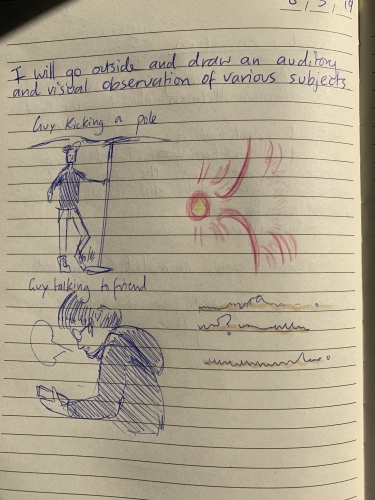 I will go outside and draw an auditory
and visual observation of various subjects.
Guy Kicking a pole
Guy talking to friend